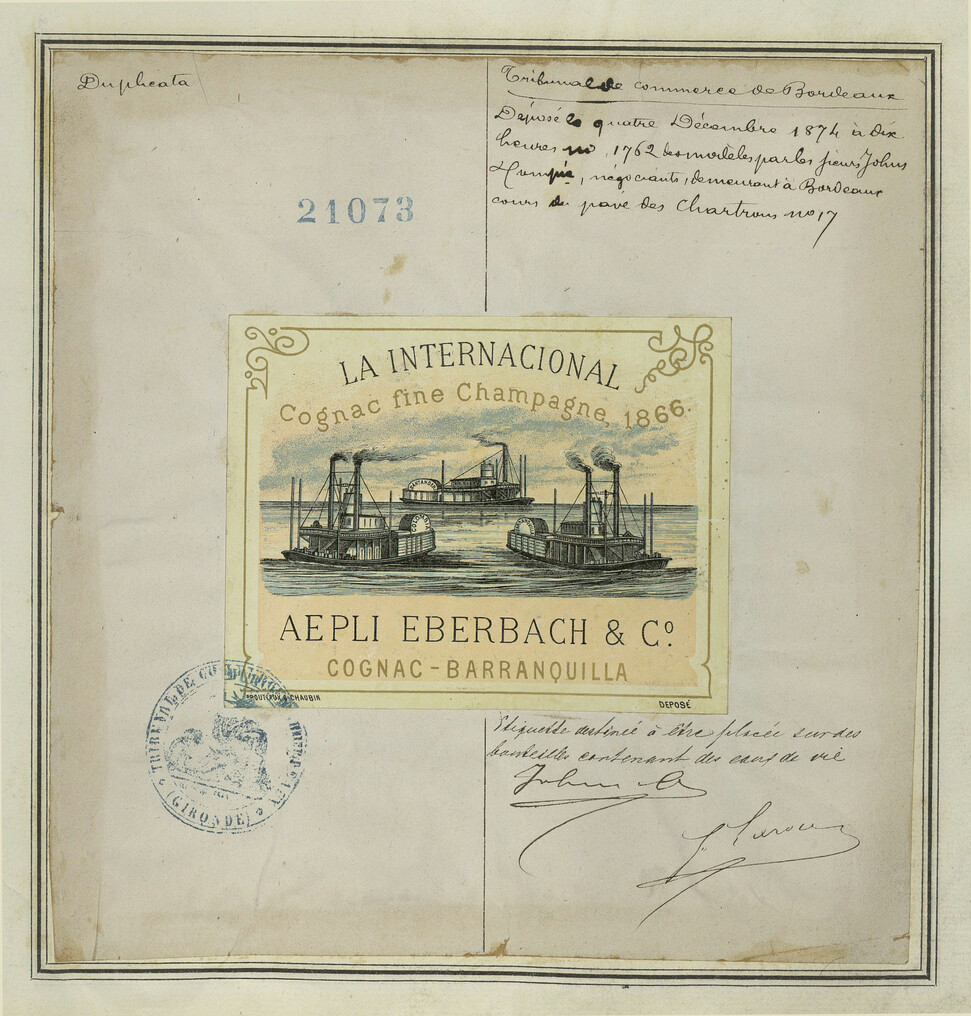 Duplicata
Tribunal de commerce de Bordeaux
Déposé le quatre Décembre 1874 à dix
heures no 1762 des modèles par les sieurs Johns
négociants, demeurant à Bordeaux
cours du pavé des Chartrons no 17
21073
LA INTERNACIONAL
Cognac fine Champagne, 1866.
SANTANDER
COLOMBIA
AEPLI EBERBACH & Cº.
COGNAC-BARRANQUILLA
& CHAUBIN
DEPOSÉ
TRIBUNAL DE COMMERCE DE BORDEAUX
(GIRONDE)
Etiquette destinée à être placée sur des
bouteilles contenant des eaux de vie